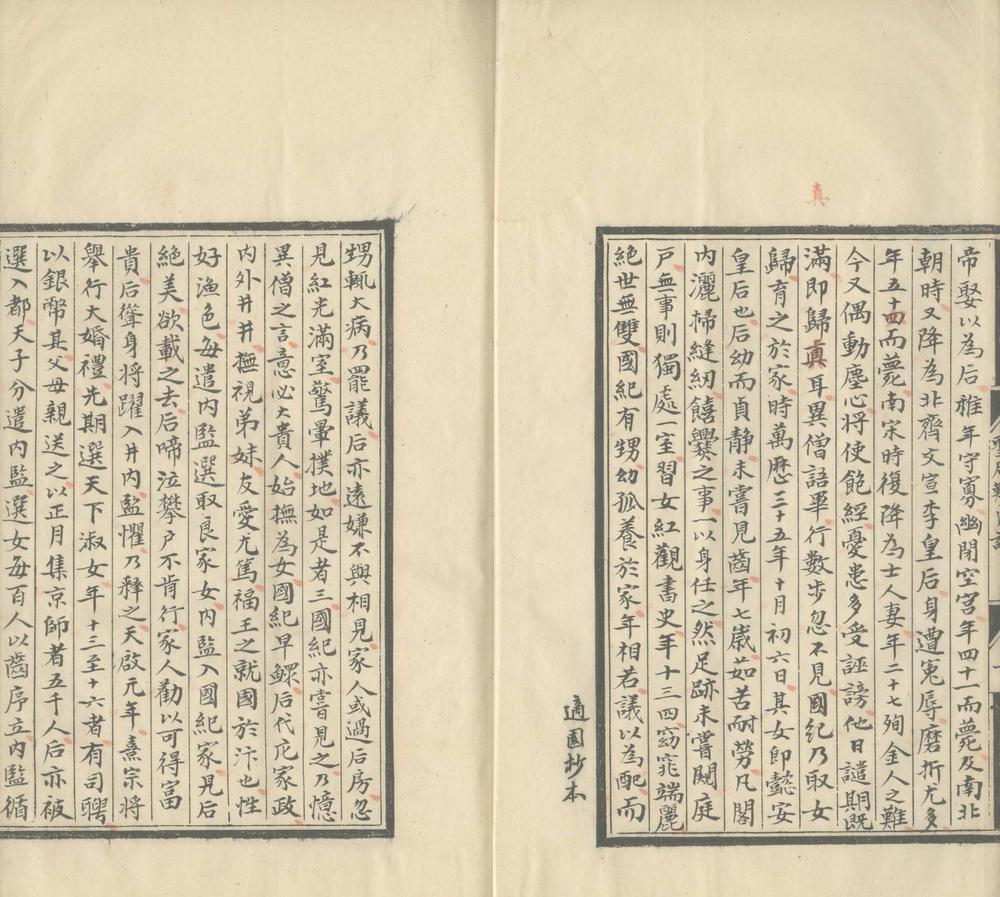 帝娶以為后稚年守寡幽閉空宮年四十一而薨及南北
朝時又降為北齊文宣李皇后身遭冤辱磨折尤多
年五十四而薨南宋時復降為士人妻年二十七殉金人之難
今又偶動塵心將使飽經憂患多受誣謗他日譴期既
滿即歸真耳異僧語畢行數步忽不見國紀乃取女
歸育之於家時萬歷三十五年十月初六日其女即懿安
皇后也后幼而貞靜未嘗見齒年七歲茹苦耐勞凡閣
內灑掃縫紉饎爨之事一以身任之然足跡未嘗闚庭
戶無事則獨處一室習女紅觀書史年十三四窈窕端麗
絕世無雙國紀有甥幼孤養於家年相若議以為配而
真
適園抄本
甥輒大病乃罷議后亦遠嫌不與相見家人或過后房忽
見紅光滿室驚暈撲地如是者三國紀亦嘗見之乃憶
異僧之言意必大貴人始撫為女國紀早鰥后代庀家政
內外井井撫視弟妹友愛尤篤福王之就國於汴也性
好漁色每遣內監選取良家女內監入國紀家見后
絕美欲載之去后啼泣攀戶不肯行家人勸以可得富
貴后聳身將躍入井內監懼乃釋之天啟元年熹宗將
舉行大婚禮先期選天下淑女年十三至十六者有司聘
以銀幣其父母親送之以正月集京師者五千人后亦被
選入都天子分遣內監選女每百人以齒序立內監循